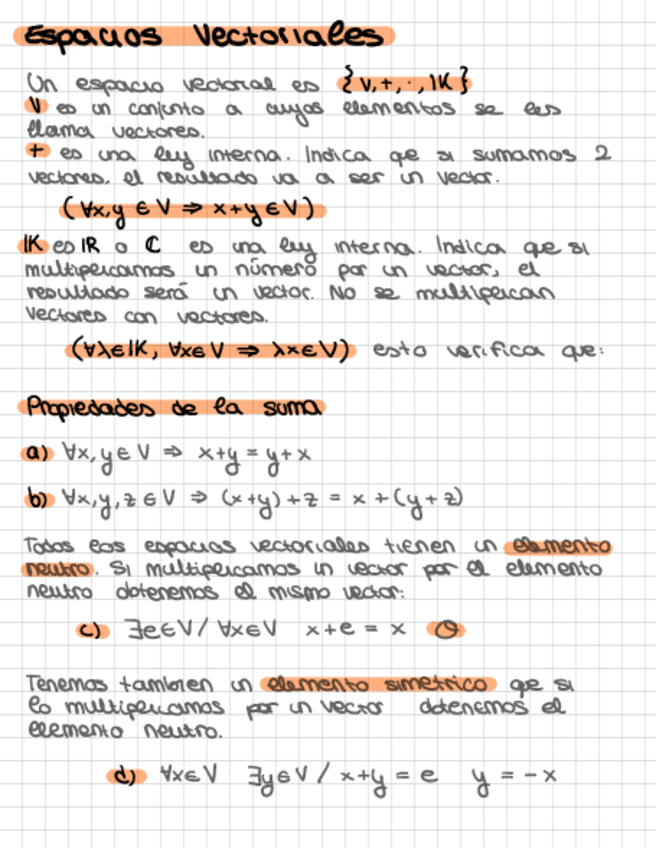 Espacios Vectoriales
Un espacio vectorial es {V,+,·,IK}
V es un conjunto a cuyos elementos se les
llama vectores.
+ es una ley interna. Indica que si sumamos 2
vectores, el resultado va a ser un vector.
(∀x,y ∈ V ⇒ x+y ∈ V)
IK es IR o ℂ es una ley interna. Indica que si
multiplicamos un número por un vector, el
resultado será un vector. No se multiplican
vectores con vectores.
(∀λ∈IK, ∀x∈V ⇒ λx∈V) esto verifica que:
Propiedades de la suma
a) ∀x,y ∈ V ⇒ x+y = y+x
b) ∀x,y,z ∈ V ⇒ (x+y)+z = x+(y+z)
Todos los espacios vectoriales tienen un elemento
neutro. Si multiplicamos un vector por el elemento
neutro obtenemos el mismo vector:
c) ∃e∈V/ ∀x∈V x+e = x Θ
Tenemos tambien un elemento simetrico que si
lo multiplicamos por un vector obtenemos el
elemento neutro.
d) ∀x∈V ∃y∈V / x+y = e y = -x